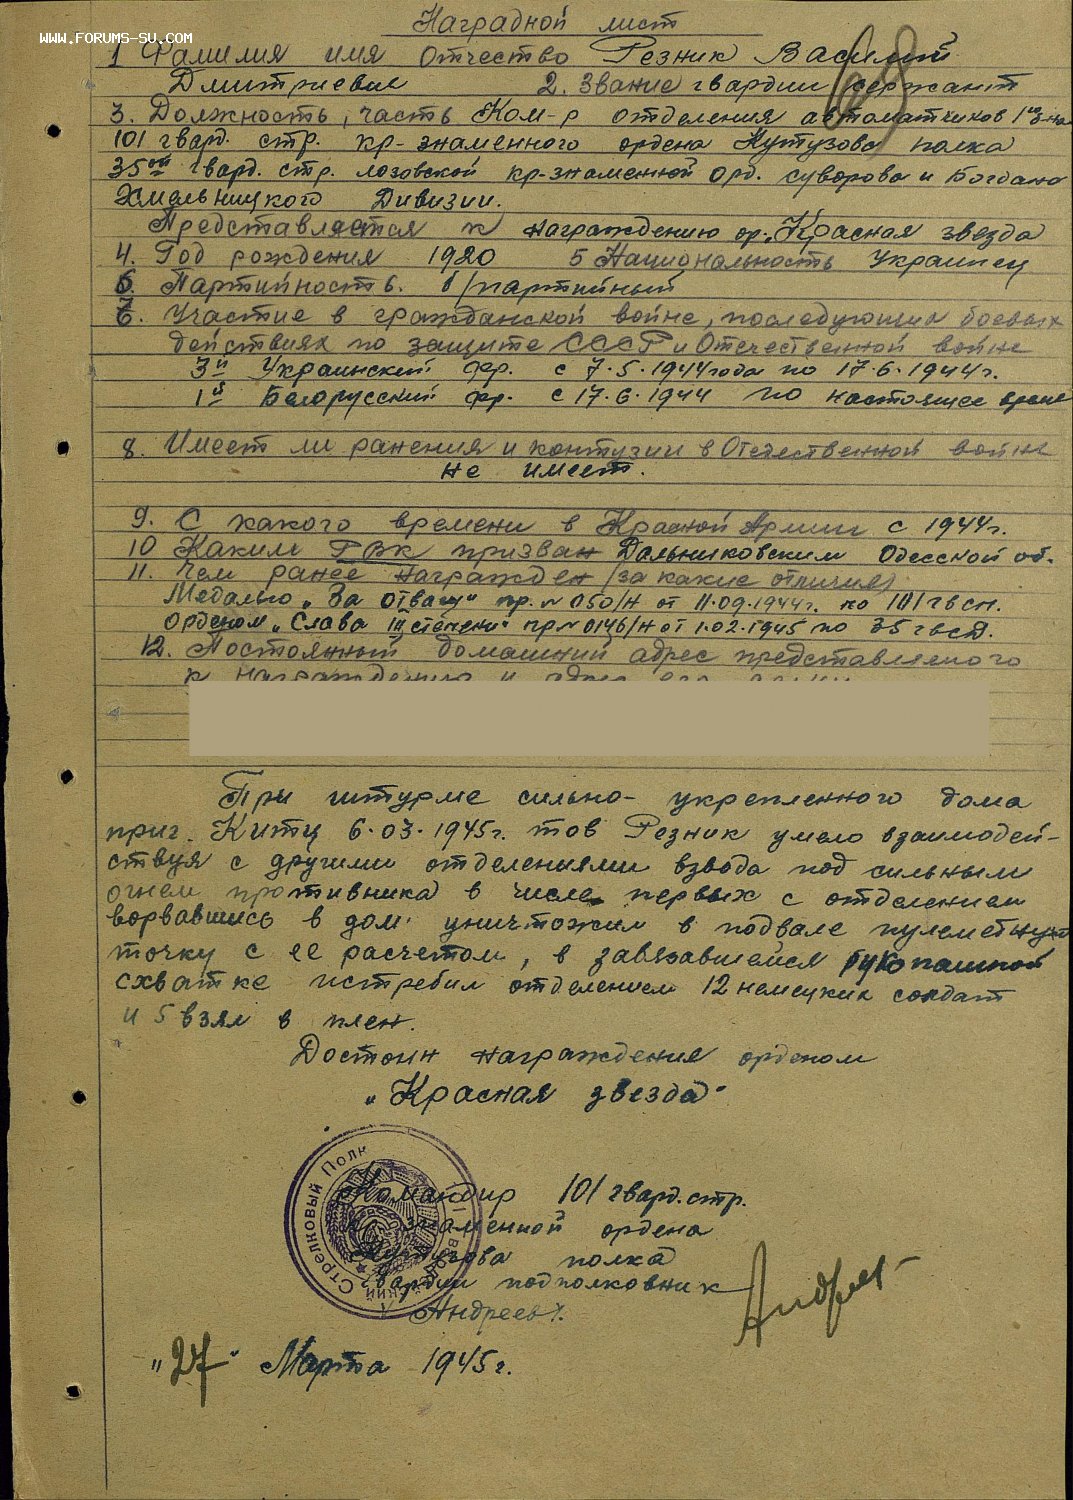 WWW.FORUMS-SU.COM
Наградной лист
1 Фамилия имя Отчество Резник Василий
Дмитриевич 2. Звание гвардии сержант
3. Должность, часть Ком-р отделения автоматчиков
101 гвард. стр. кр-знаменного ордена Кутузова полка
35ой гвард. стр. лозовской кр-знаменной орд. Суворова и Богдана
Хмельницкого Дивизии.
Представляется к награждению ор. „Красная звезда
4. Год рождения 1920 5 Национальность Украинец
6. Партийность. б/партийный
7. Участие в гражданской войне, последующих боевых
действиях по защите СССР и Отечественной войне
3й Украинский фр. с 7.5.1944 года по 17.6.1944г.
1й Белорусский фр. с 17.6.1944 по настоящее время
8. Имеет ли ранения и контузии в Отечественной войне
не имеет.
9. С какого времени в Красной Армии с 1944г.
10 Каким РВК призван Дальниковским Одесской об.
11. Чем ранее награжден (за какие отличия)
Медалью „За отвагу" пр. № 050/н от 11.09.1944г. по 101 гвсп.
Орденом „Слава III степени" пр № 0146/н от 1.02.1945 по 35 гвсд.
12. Постоянный домашний адрес представляемого
к награждению и адрес его
При штурме сильно- укрепленного дома
приг. Китц 6.03.1945г. тов Резник умело взаимодей-
ствуя с другими отделениями взвода под сильным
огнем противника в числе первых с отделением
ворвавшись в дом уничтожил в подвале пулеметную
точку с ее расчетом, в завязавшейся рукопашной
схватке истребил отделением 12 немецких солдат
и 5 взял в плен.
Достоин награждения орденом
„Красная звезда"
Стрелковый Полк
Командир 101 гвард. стр.
кр знаменной ордена
Кутузова полка
гвардии подполковник
/Андреев/.
„27" Марта 1945г.